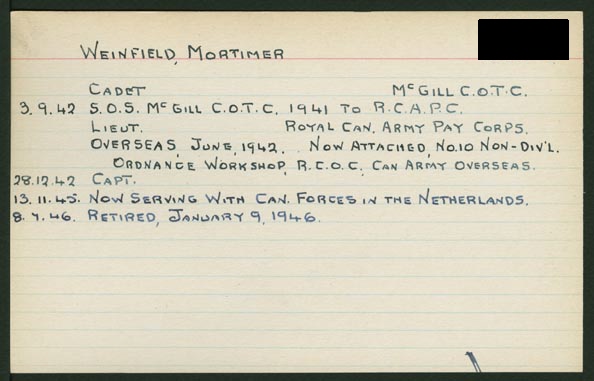 WEINFIELD, MORTIMER
CADET McGILL C.O.T.C.
3.9.42 S.O.S. McGILL C.O.T.C. 1941 TO R.C.A.P.C.
LIEUT. ROYAL CAN. ARMY PAY CORPS.
OVERSEAS, JUNE, 1942. NOW ATTACHED, NO.10 NON-DIV'L.
ORDNANCE WORKSHOP, R.C.O.C. CAN ARMY OVERSEAS.
28.12.42 CAPT.
13.11.45. NOW SERVING WITH CAN. FORCES IN THE NETHERLANDS.
8.7.46. RETIRED, JANUARY 9, 1946.